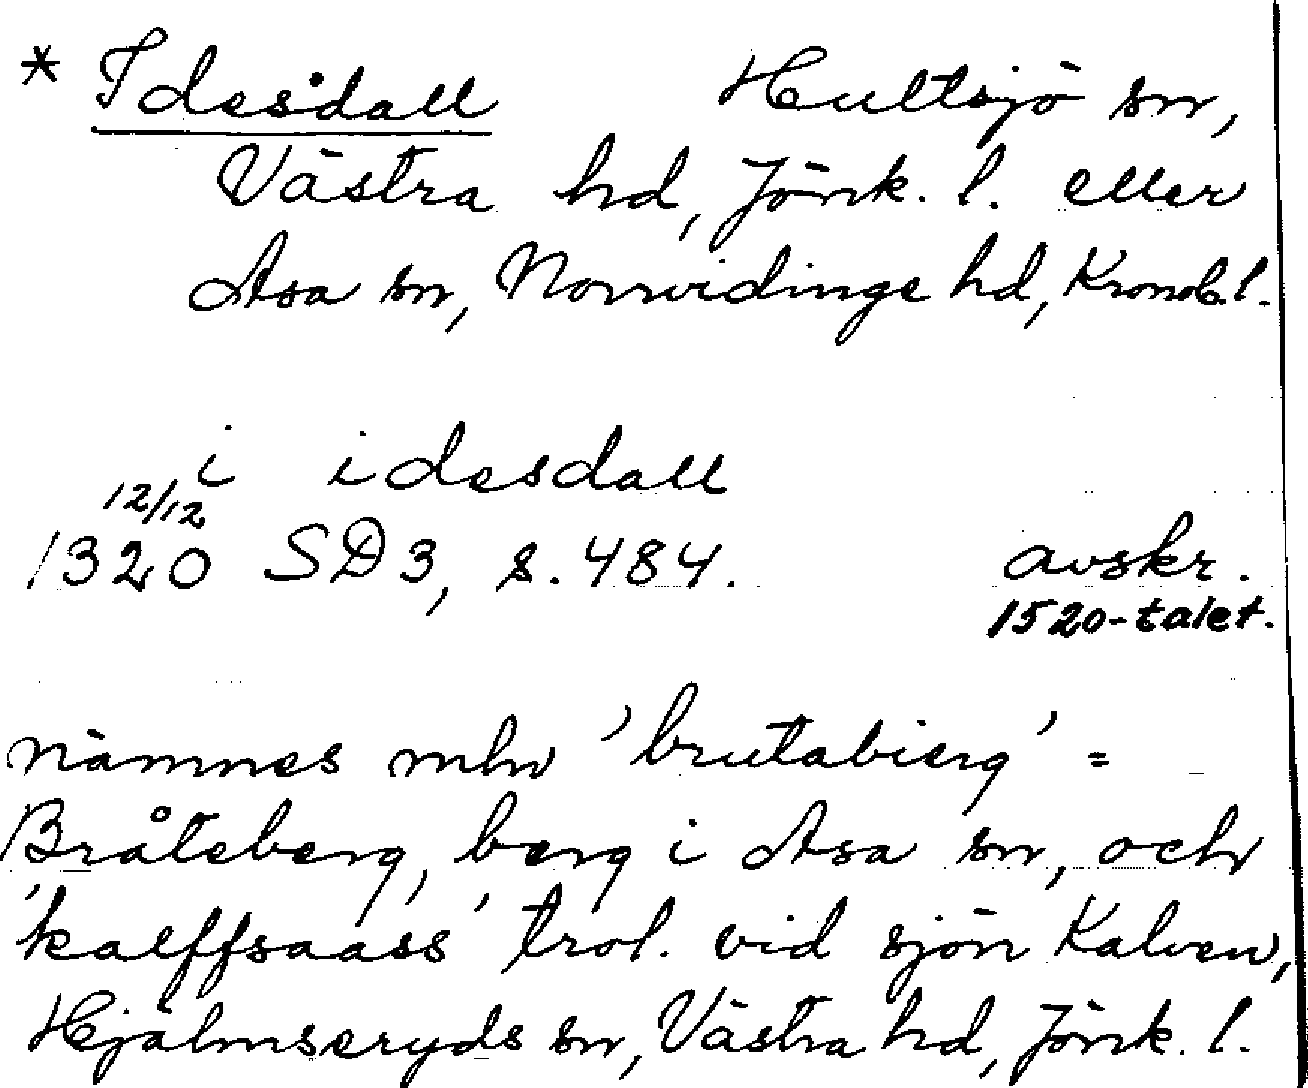 * Idesdall Hultsjö sn,
Västra hd, Jönk. l. eller
Asa sn, Norrvidinge hd, Kronob. l.
i idesdall
12/12
1320 SD 3, s. 484. avskr.
1520-talet.
nämnes mlw 'brutabierg' =
Bråteberg, berg i Asa sn, och
'kalffsaass' trol. vid sjön Kalven,
Hjälmseryds sn, Västra hd, Jönk. l.